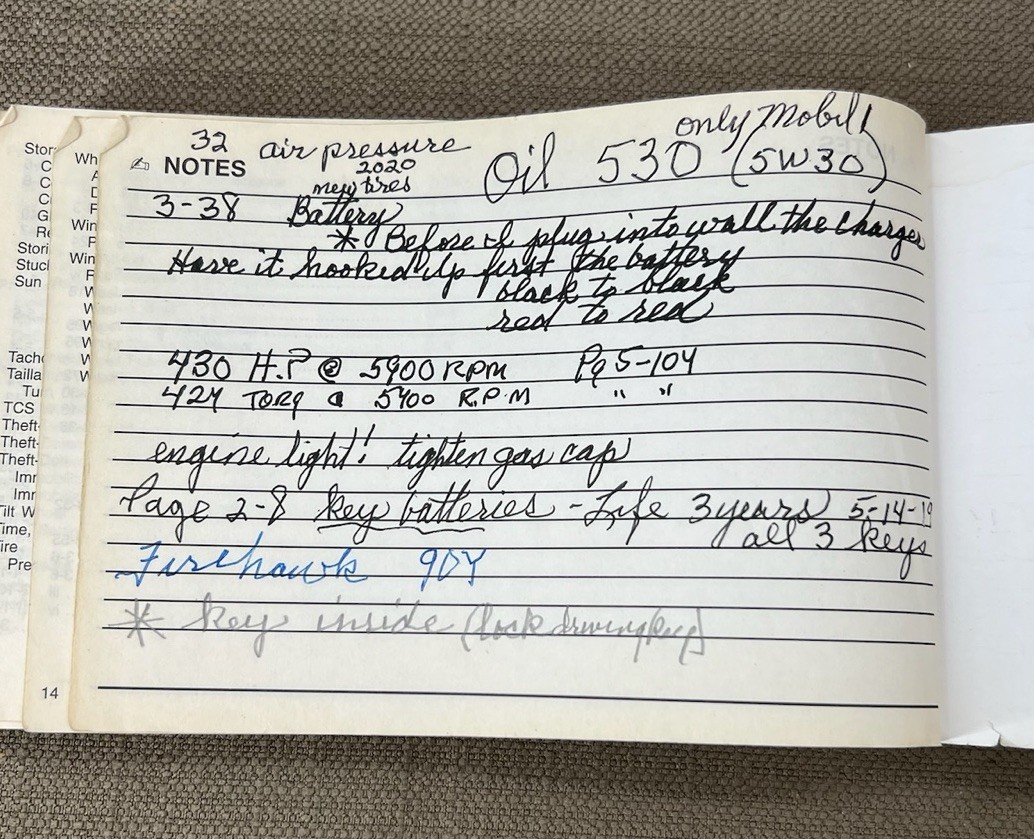 only Mobil 1
32 air pressure
Oil 530 (5W30)
NOTES
2020
new tires
3-38 Battery
* Before I plug into wall the charger
Have it hooked up first the battery
black to black
red to red
430 H.P @ 5900 RPM Pg 5-104
424 TORQ @ 5400 R.P.M " "
engine light! tighten gas cap
Page 2-8 key batteries - Life 3 years 5-14-19
all 3 keys
Firehawk 90Y
* key inside (lock driving key)
14
Stor
C
C
C
G
Re
Stori
Stuc
Sun
Tach
Tailla
Tu
TCS
Theft-
Theft-
Theft-
Imr
Imr
Tilt W
Time,
Tire
Pre
Wh
A
D
F
Win
F
Win
F
W
W
W
W
W
W